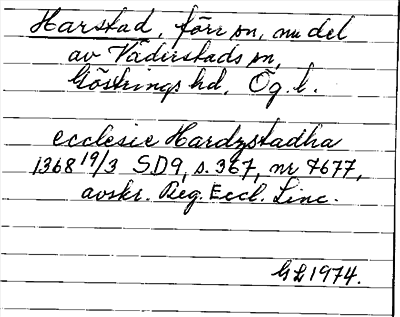 Harstad, förr sn, nu del
av Väderstads sn,
Göstrings hd, Ög. l.
ecclesie Hardzstadha
1368 19/3 SD9, s. 367, nr 7677,
avskr. Reg. Eccl. Linc.
GL1974.